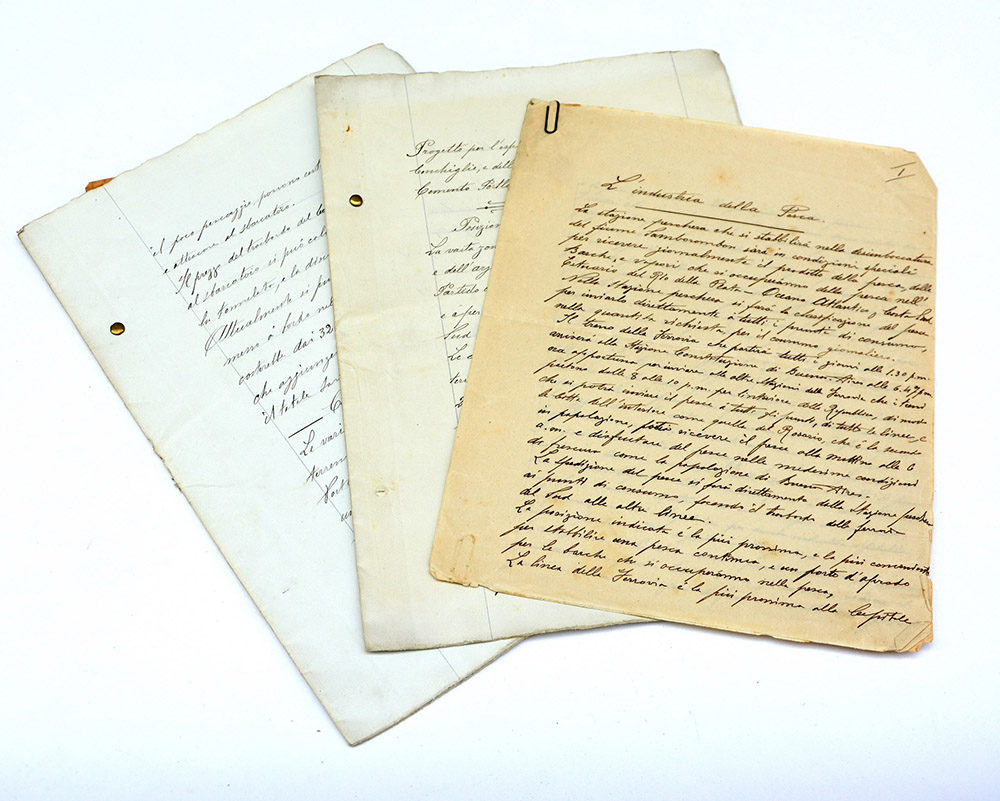 el poco pescaggio, possono
e attivare al sbarcatoio.
Il prezzo del trasbordo
al sbarcatoio si può
la tonnellata, e la
Attualmente si
meni a bordo
costrette dai 32
che aggiungere
il totale
Le vari
terren
Progetto per l'esp
Conchiglie, e dell
Cemento
Posizio
La vasta zon
e dell'arg
Partido
e a per
Sud
Le
I
L'industria della Pesca.
La stazione peschera che si stabilirà nella desemboccatura
del fiume Samborombon sarà in condizioni speciali
per ricevere giornalmente il prodotto della pesca, dalle
Barche, e vapori che si occuperanno della pesca, nell'
Estuario del Rio della Plata, Oceano Atlantico, e Costa Sud.
Nella Stazione peschera si farà la classificazione del pesce
per inviarlo direttamente a tutti i punti di consumo
nella quantità richiesta, per il consumo giornaliero.
Il treno della Ferrovia che partirà tutti i giorni alle 1.30 p.m.
arriverà alla Stazione Constituzione di Buenos Aires alle 6.47 p.m.
ora opportuna per inviare alle altre Stazioni delle Ferrovie che i treni
partono dalle 8 alle 10 p.m. per l'interiore della Republica, di modo
che si potrà inviare il pesce a tutti gli punti, di tutte le linee, e
le città dell'interiore come quella del Rosario, che è la seconda
in popolazione, potrà ricevere il pesce alla mattina alle 6
a.m. e disfrutare del pesce nelle medesime condizioni
di frescura come la popolazione di Buenos Aires.
La spedizione del pesce si farà direttamente della Stazione peschera
ai punti di consumo, facendo il trasbordo della ferrovia
del Sud alle altre linee.
La posizione indicata è la più prossima, e la più conveniente
per stabilire una pesca continua, e un porto d'aprodo
per le barche che si occuperanno nella pesca,
La linea della Ferrovia è la più prossima alla Capitale